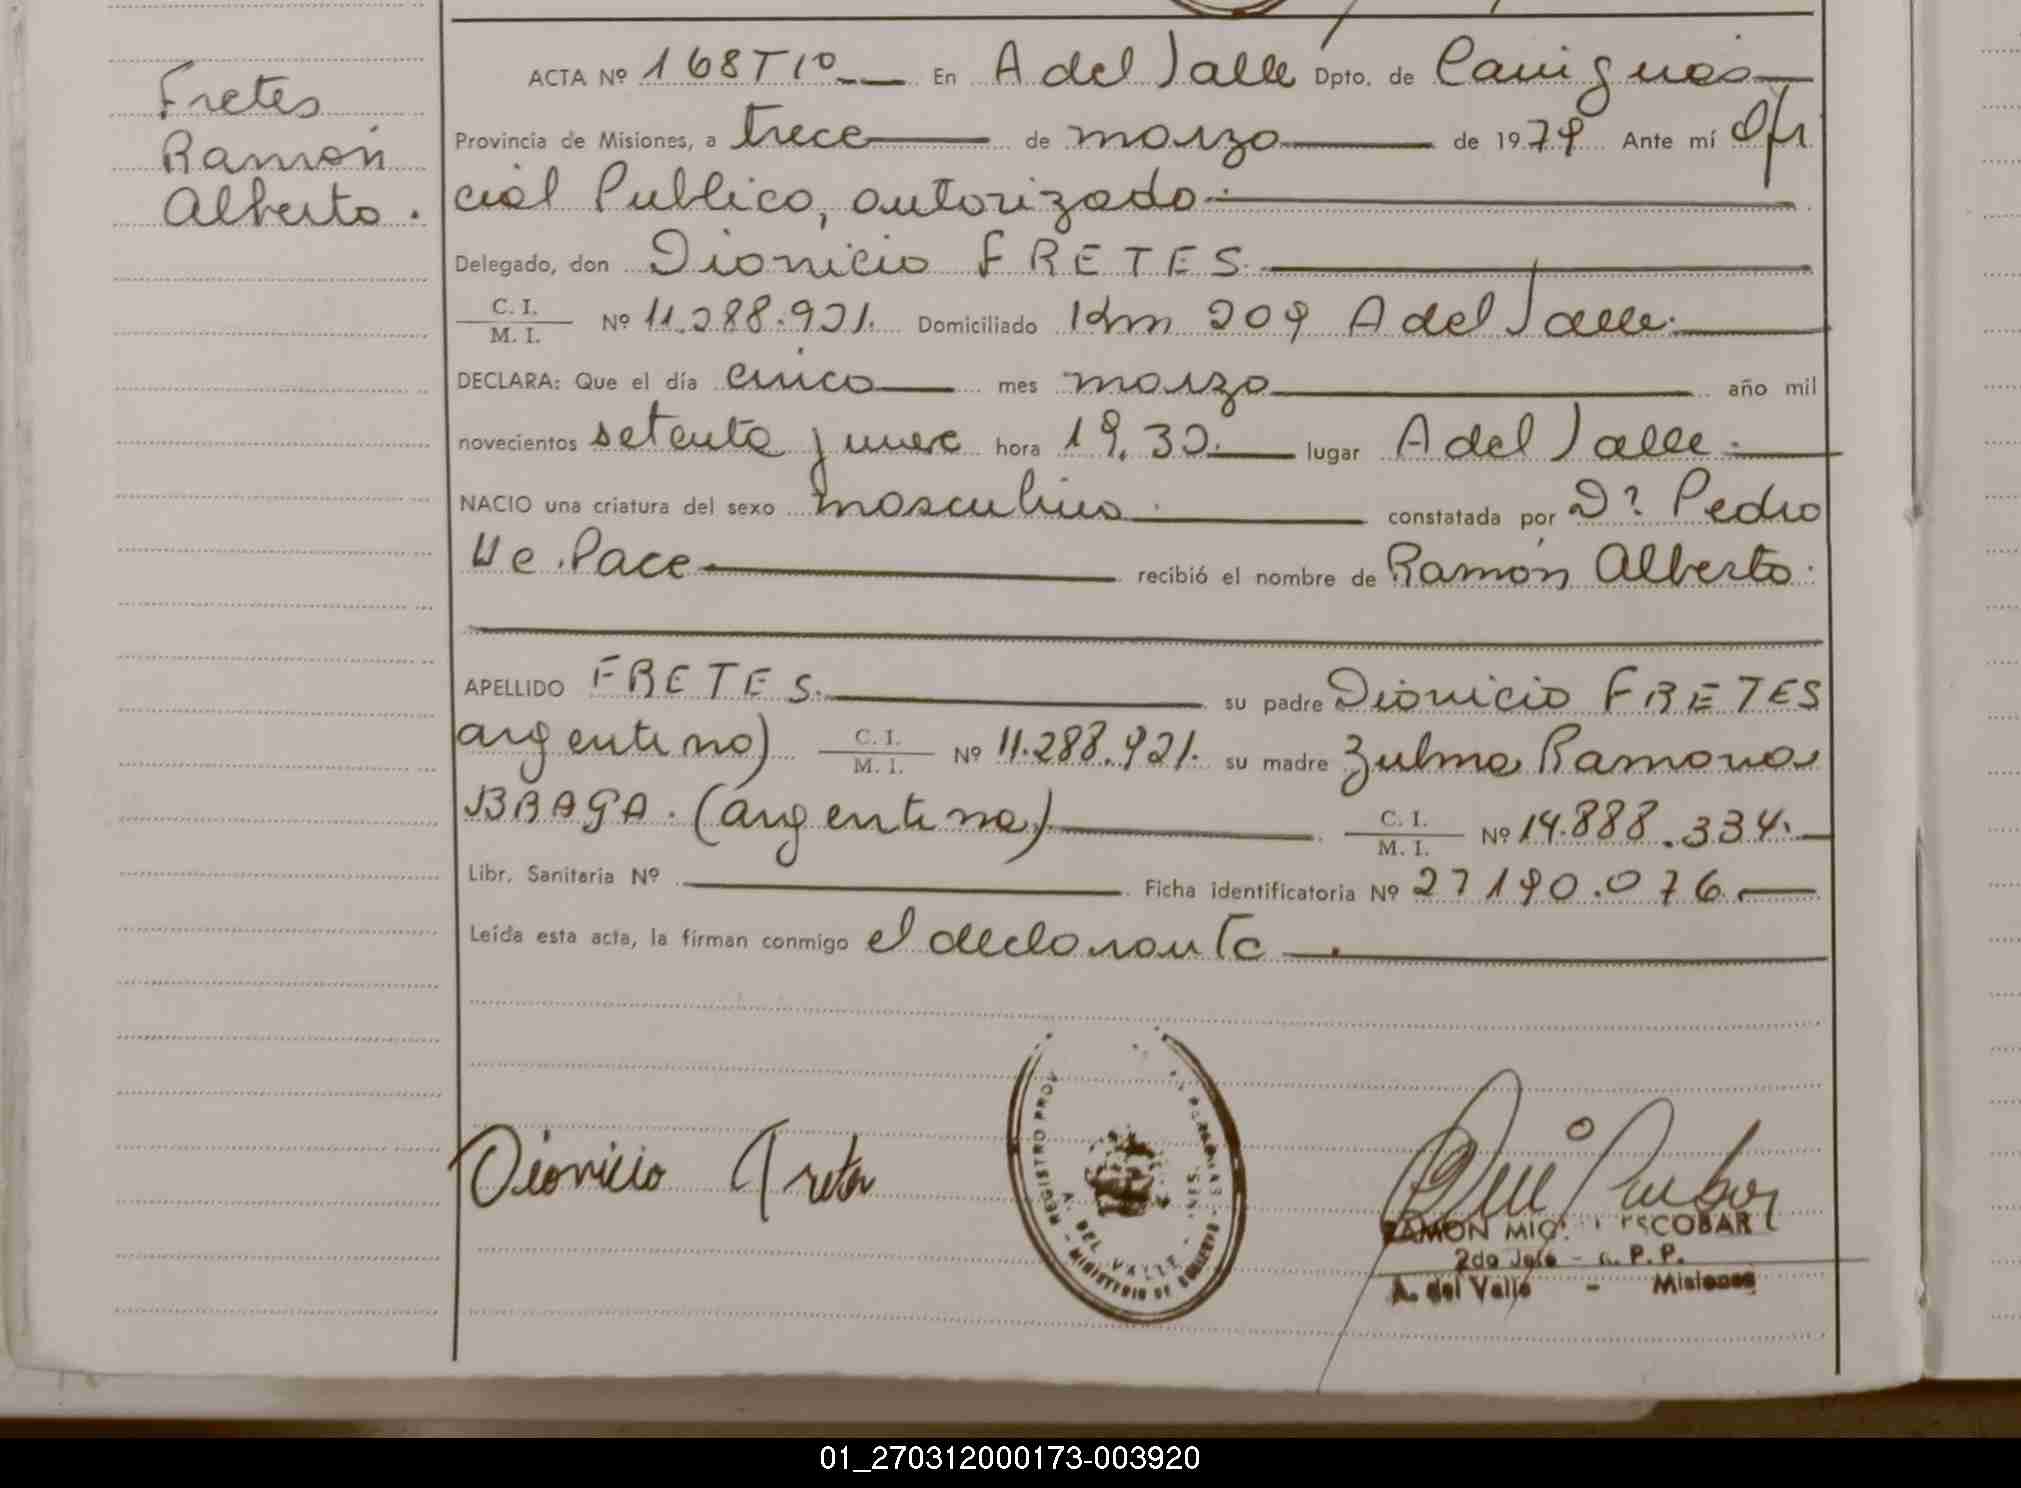 Fretes
Ramón
Alberto.
ACTA Nº 168 T 1º En A del Valle Dpto. de Cainguás
Provincia de Misiones, a trece de marzo de 1979 Ante mí Ofi
cial Publico, autorizado
Delegado, don Dionicio FRETES
C. I.
M. I. Nº 11.288.921. Domiciliado Km 209 A del Valle.
DECLARA: Que el día cinco mes marzo año mil
novecientos setenta y nueve hora 19,30. lugar A del Valle.
NACIO una criatura del sexo masculino constatada por Dº Pedro
De Pace recibió el nombre de Ramón Alberto.
APELLIDO FRETES. su padre Dionicio FRETES
argentino) C. I. M. I. Nº 11.288.921. su madre Zulma Ramona
BRAGA. (argentina) C. I. M. I. Nº 14.888.334.
Libr. Sanitaria Nº Ficha identificatoria Nº 27190.076.
Leída esta acta, la firman conmigo el declarante.
Dionicio Fretes
REGISTRO PROV
A. DEL VALLE
MINISTERIO DE GOBIERNO
RAMON MIG ESCOBAR
2do Jefe - R. P. P.
A. del Valle - Misiones
01_270312000173-003920